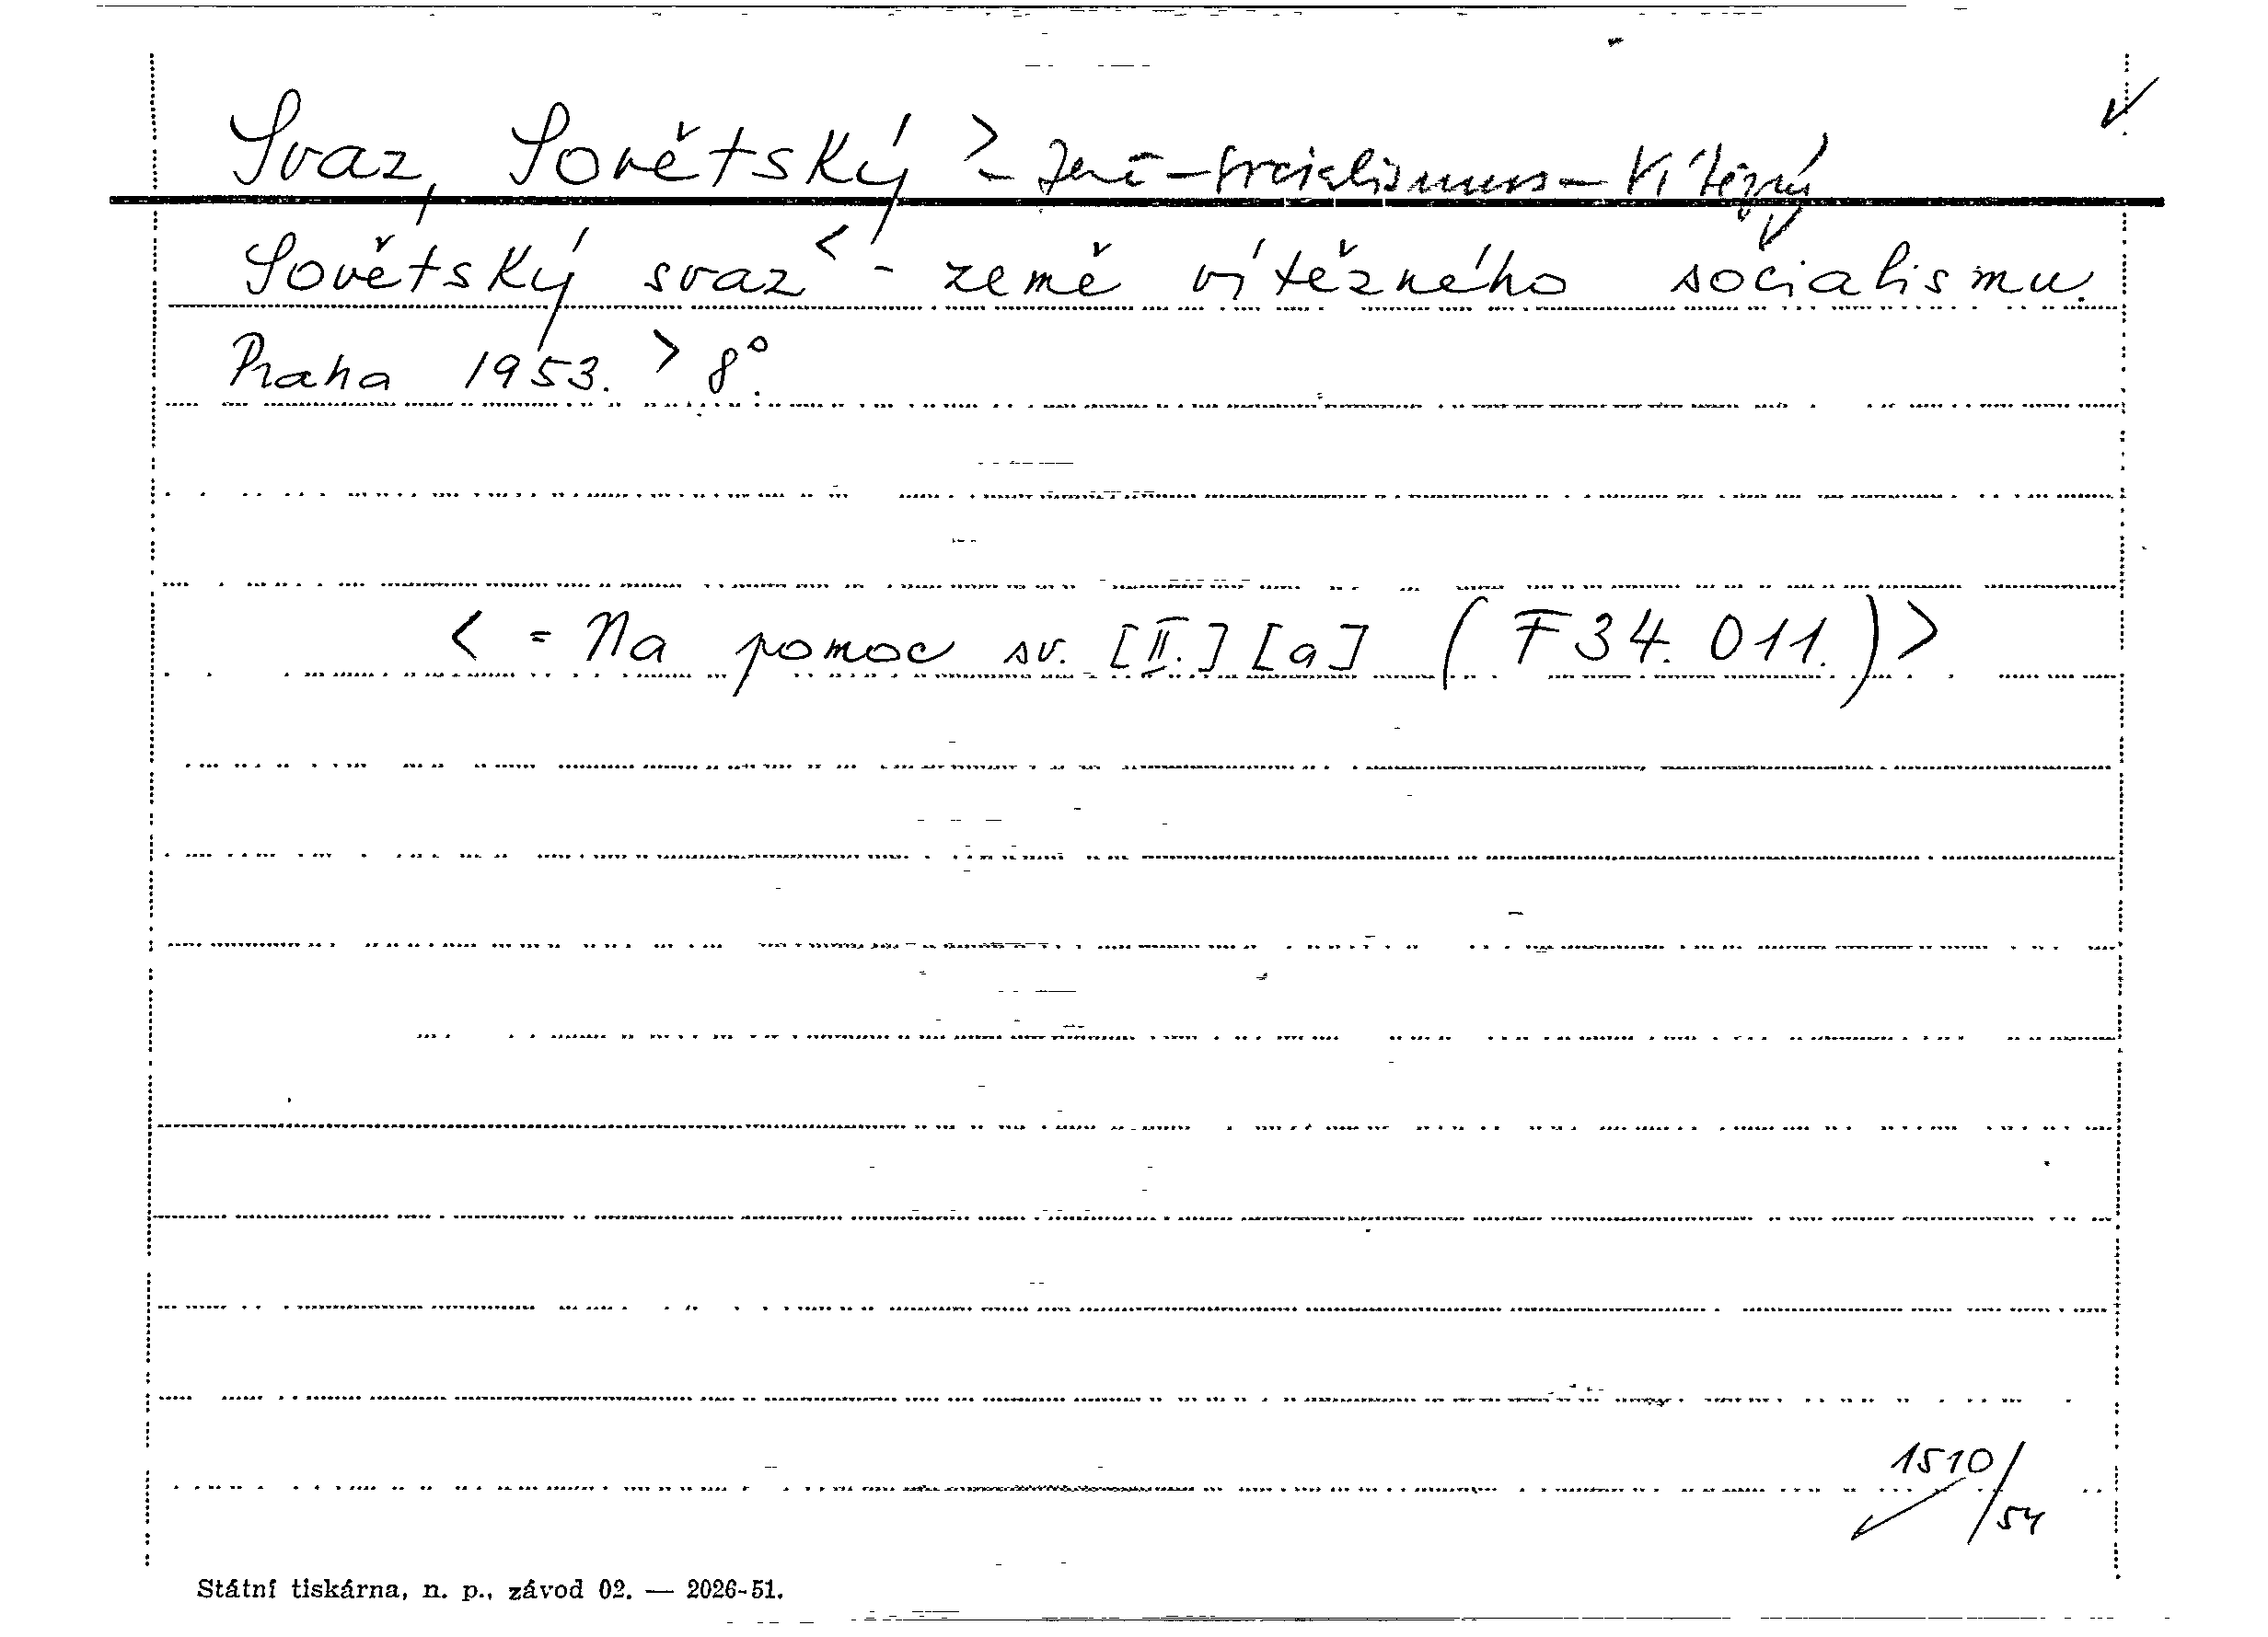 Svaz, Sovětský > - Země - socialismus - Vítězný
Sovětský svaz < - země vítězného socialismu.
Praha 1953. > 8°.
< = Na pomoc sv. [II.] [a] (F 34.011.) >
1510/54
Státní tiskárna, n. p., závod 02. — 2026-51.